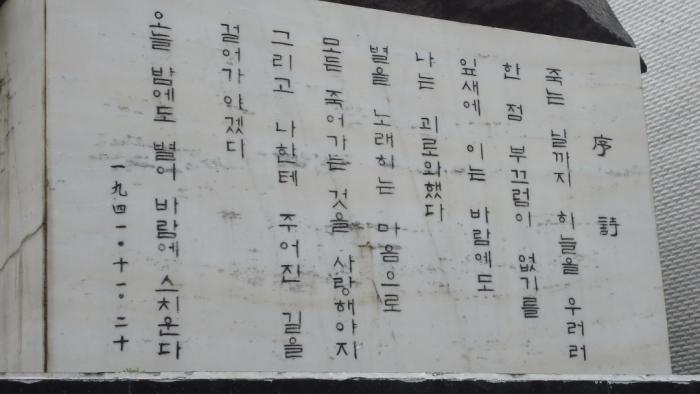 序 詩
죽는 날까지 하늘을 우러러
한 점 부끄럼이 없기를
잎새에 이는 바람에도
나는 괴로와했다
별을 노래하는 마음으로
모든 죽어가는 것을 사랑해야지
그리고 나한테 주어진 길을
걸어가야겠다
오늘 밤에도 별이 바람에 스치운다
一九四一·十一·二十